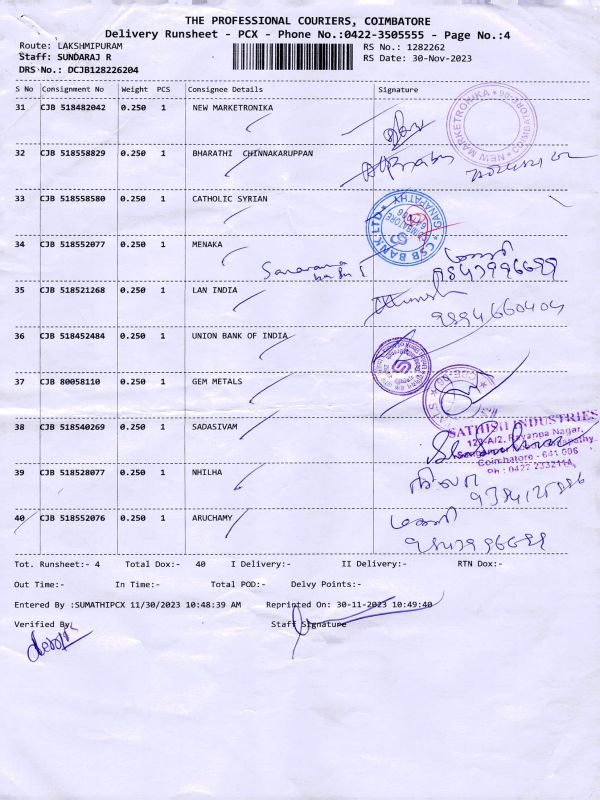 THE PROFESSIONAL COURIERS, COIMBATORE
Delivery Runsheet - PCX - Phone No.:0422-3505555 - Page No.:4
Route: LAKSHMIPURAM RS No.: 1282262
Staff: SUNDARAJ R RS Date: 30-Nov-2023
DRS No.: DCJB128226204
S No Consignment No Weight PCS Consignee Details Signature
31 CJB 518482042 0.250 1 NEW MARKETRONIKA
NEW MARKETRONIKA * COIMBATORE-06 *
32 CJB 518558829 0.250 1 BHARATHI CHINNAKARUPPAN
33 CJB 518558580 0.250 1 CATHOLIC SYRIAN
CSB BANK LTD * GANAPATHY *
COIMBATORE
34 CJB 518552077 0.250 1 MENAKA
9843996699
35 CJB 518521268 0.250 1 LAN INDIA
9894660404
36 CJB 518452484 0.250 1 UNION BANK OF INDIA
37 CJB 80058110 0.250 1 GEM METALS
38 CJB 518540269 0.250 1 SADASIVAM
SATHISH INDUSTRIES
Coimbatore - 641 006
39 CJB 518528077 0.250 1 NHILHA
40 CJB 518552076 0.250 1 ARUCHAMY
9843996699
Tot. Runsheet:- 4 Total Dox:- 40 I Delivery:- II Delivery:- RTN Dox:-
Out Time:- In Time:- Total POD:- Delvy Points:-
Entered By :SUMATHIPCX 11/30/2023 10:48:39 AM Reprinted On: 30-11-2023 10:49:40
Verified By Staff Signature